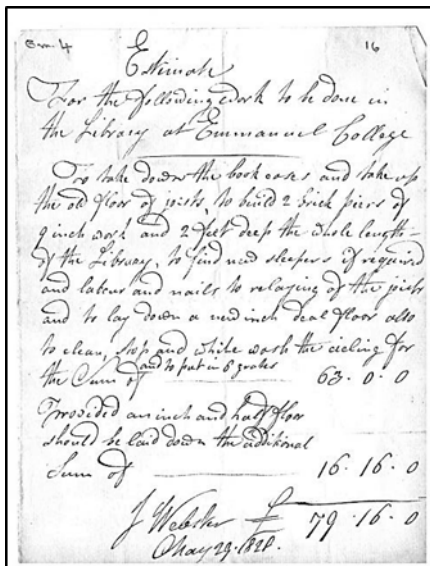 Box 4 16
Estimate
For the following Work to be done in
the Library at Emmanuel College
To take down the book cases and take up
the old floor of joists, to build 2 brick piers of
9 inch work and 2 feet deep the whole length
of the Library, to find new sleepers if required
and labour and nails to relaying of the joists
and to lay down a new inch deal floor also
to clean, stop and white wash the cieling for
the Sum of and to put in 6 grates 63.0.0
Provided an inch and half floor
should be laid down the additional
Sum of 16.16.0
J Webster £ 79.16.0
May 29. 1828.